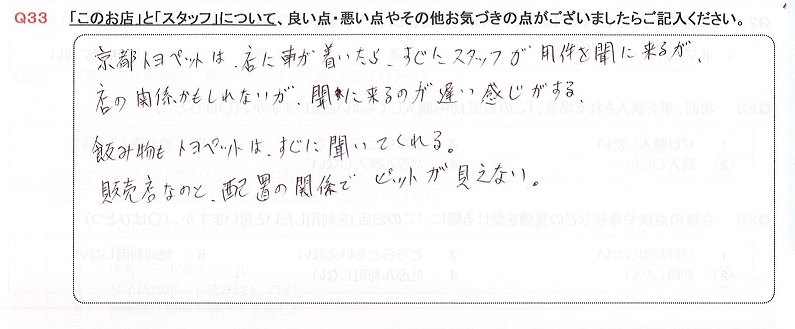 Q33 「このお店」と「スタッフ」について、良い点・悪い点やその他お気づきの点がございましたらご記入ください。
京都トヨペットは、店に車が着いたら、すぐにスタッフが用件を聞に来るが、
店の関係かもしれないが、聞きに来るのが遅い感じがする、
飲み物もトヨペットは、すぐに聞いてくれる。
販売店なのと、配置の関係でピットが見えない。